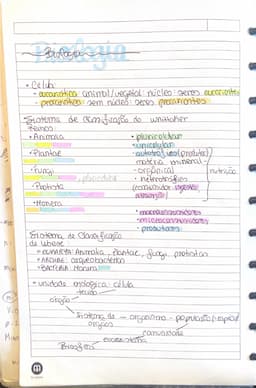 Biologia
Biologia
• Célula
• eucariótica animal/vegetal: núcleo: seres eucariontes
• procariótica: sem núcleo: seres procariontes
Sistema de Classificação de Whittaker
Reinos
• Animalia
• pluricelular
• unicelular
• Plantae
• autotrófico (produtor)
matéria mineral-
• Fungi
orgânica)
nutrição
• heterotrófico
• Protista
(consumidor ingestão,
absorção)
• Monera
• macroconsumidores
• microconsumidores
• produtores
Sistema de Classificação
de Woese
• EUKARYA: Animalia, Plantae, fungi, protistas
• ARCHAEA: arqueobactérias
• BACTERIA: Monera
• unidade biológica: célula
tecido
órgão
Sistema de - organismo - população/espécie
órgãos
comunidade
ecossistema
Biosfera